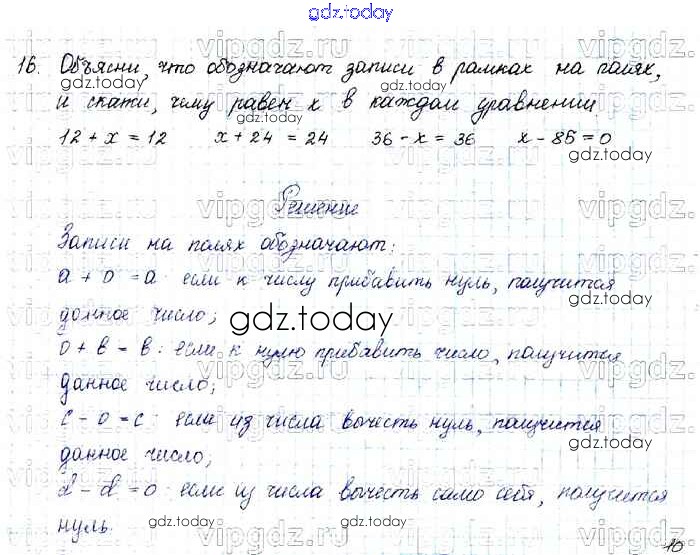 gdz.today
16. Объясни, что обозначают записи в рамках на полях,
и скажи, чему равен x в каждом уравнении.
12 + x = 12 x + 24 = 24 36 - x = 36 x - 85 = 0
gdz.today gdz.today
Решение
Записи на полях обозначают:
a + 0 = a: если к числу прибавить нуль, получится
данное число;
gdz.today
0 + b = b: если к нулю прибавить число, получится
данное число;
c - 0 = c: если из числа вычесть нуль, получится
данное число;
gdz.today
d - d = 0: если из числа вычесть само себя, получается
нуль.
gdz.today
10